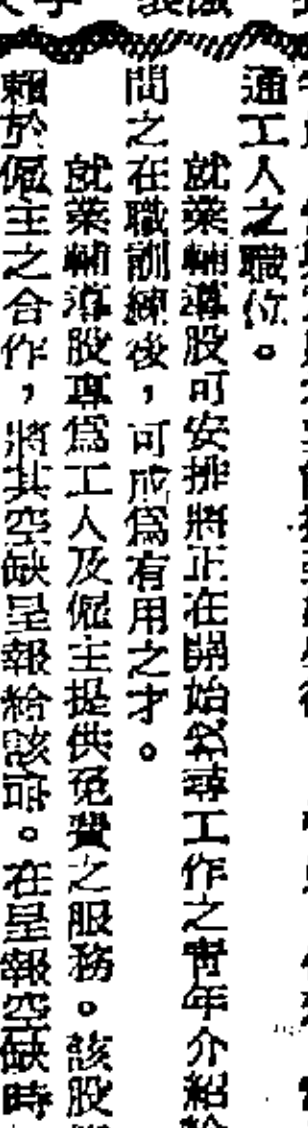 通工人之職位。
就業輔導股可安排將正在開始找尋工作之青年介紹給
間之在職訓練後，可成爲有用之才。
就業輔導股專爲工人及僱主提供免費之服務。該股
賴於僱主之合作，將其空缺呈報給該部。在呈報空缺時